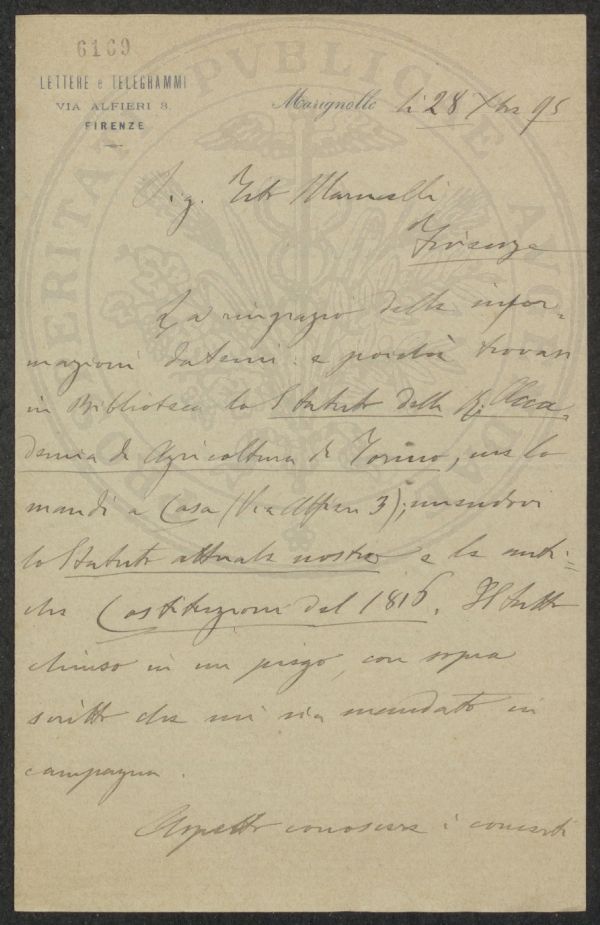 6169
LETTERE e TELEGRAMMI
VIA ALFIERI 3.
FIRENZE
Marignolle li 28 Xbre 95
PROSPERITATI PVBLICAE AVGENDAE
Sig. Marucelli
Firenze
La ringrazio delle infor-
mazioni datemi: e poichè trovasi
in Biblioteca lo Statuto della R. Acca-
demia di Agricoltura di Torino, me lo
mandi a Casa (Via Alfieri 3); unendovi
lo Statuto attuale nostro e le anti-
che Costituzioni del 1816. Il tutto
chiuso in un piego, con sopra
scritto che mi sia mandato in
campagna.
Aspetto conoscere i